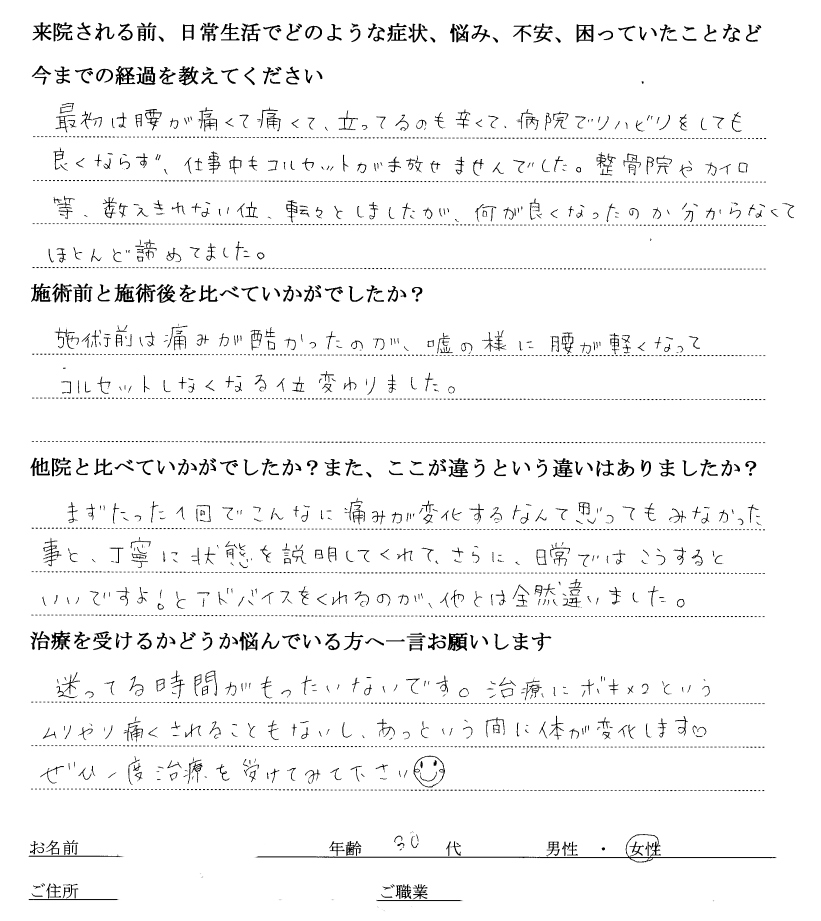 来院される前、日常生活でどのような症状、悩み、不安、困っていたことなど
今までの経過を教えてください
最初は腰が痛くて痛くて、立ってるのも辛くて、病院でリハビリをしても
良くならず、仕事中もコルセットが手放せませんでした。整骨院やカイロ
等、数えきれない位、転々としましたが、何が良くなったのか分からなくて
ほとんど諦めてました。
施術前と施術後を比べていかがでしたか？
施術前は痛みが酷かったのが、嘘の様に腰が軽くなって
コルセットしなくなる位変わりました。
他院と比べていかがでしたか？また、ここが違うという違いはありましたか？
まずたった1回でこんなに痛みが変化するなんて思ってもみなかった
事と、丁寧に状態を説明してくれて、さらに、日常ではこうすると
いいですよ!とアドバイスをくれるのが、他とは全然違いました。
治療を受けるかどうか悩んでいる方へ一言お願いします
迷ってる時間がもったいないです。治療にボキメコという
ムリやり痛くされることもないし、あっという間に体が変化します♡
ぜひ一度治療を受けてみて下さい☺
お名前 年齢 30 代 男性 ・ 女性
ご住所 ご職業